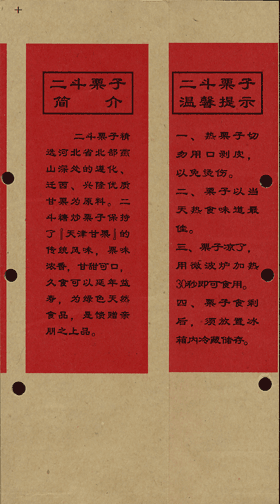 二斗栗子
简 介
二斗栗子精
选河北省北部燕
山深处的遵化、
迁西、兴隆优质
甘栗为原料。二
斗糖炒栗子保持
了『天津甘栗』的
传统风味，栗味
浓香，甘甜可口，
久食可以延年益
寿，为绿色天然
食品，是馈赠亲
朋之上品。
二斗栗子
温馨提示
一、热栗子切
勿用口剥皮，
以免烫伤。
二、栗子以当
天热食味道最
佳。
三、栗子凉了，
用微波炉加热
30秒即可食用。
四、栗子食剩
后，须放置冰
箱内冷藏储存。